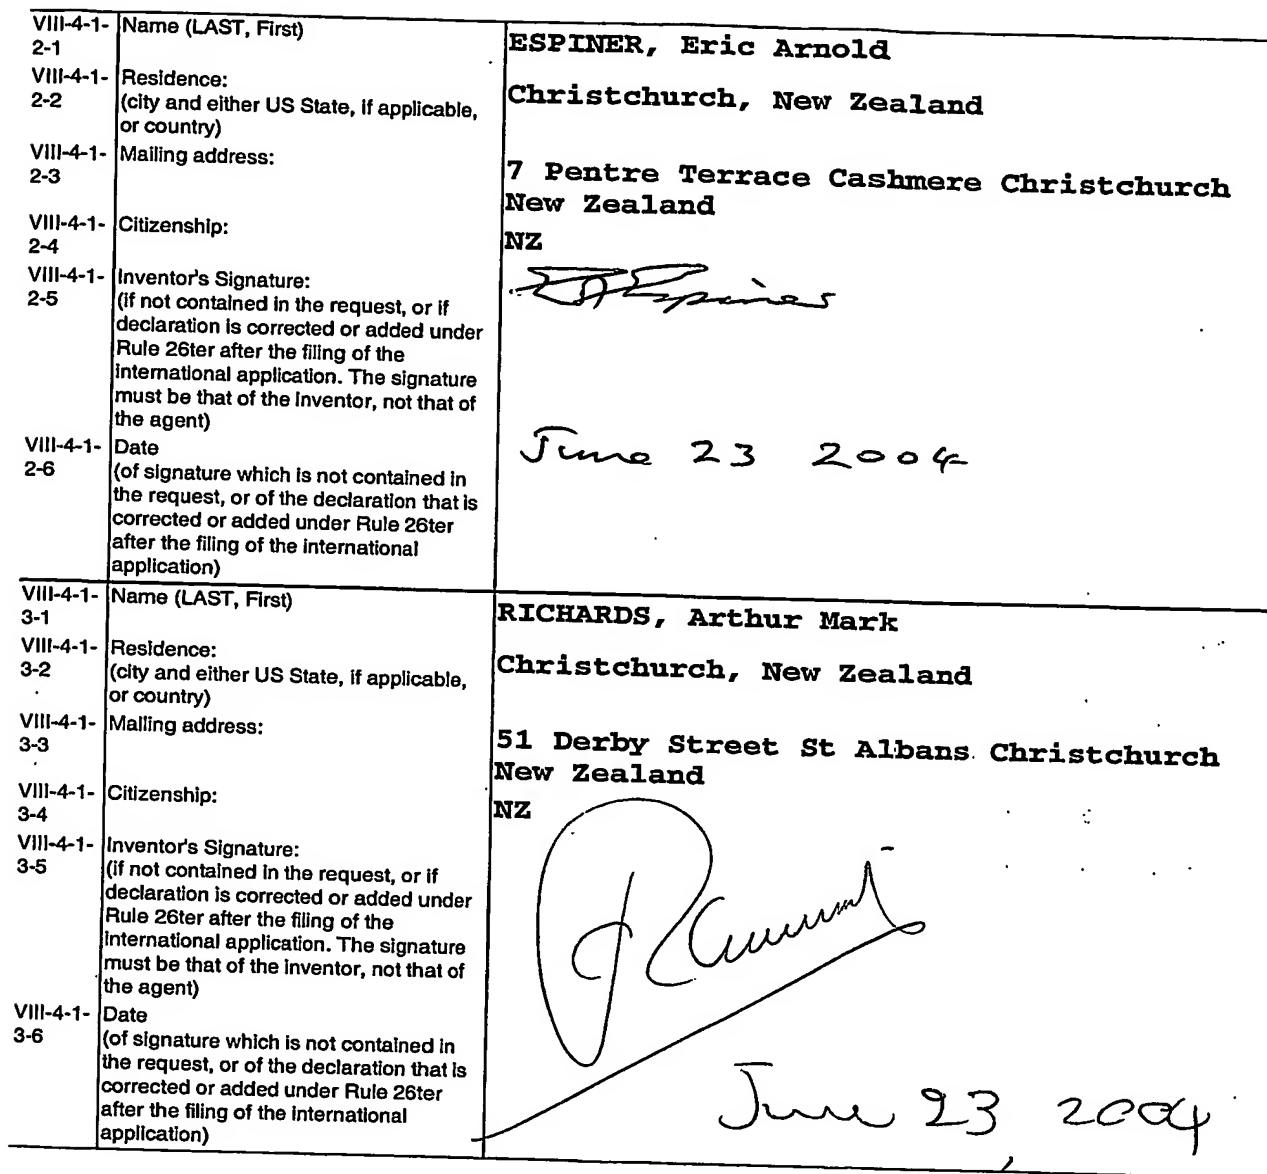 VIII-4-1-2-1 Name (LAST, First) ESPINER, Eric Arnold
VIII-4-1-2-2 Residence: Christchurch, New Zealand
(city and either US State, if applicable,
or country)
VIII-4-1-2-3 Mailing address: 7 Pentre Terrace Cashmere Christchurch
New Zealand
VIII-4-1-2-4 Citizenship: NZ
VIII-4-1-2-5 Inventor's Signature: EA Espiner
(if not contained in the request, or if
declaration is corrected or added under
Rule 26ter after the filing of the
international application. The signature
must be that of the inventor, not that of
the agent)
VIII-4-1-2-6 Date June 23 2004
(of signature which is not contained in
the request, or of the declaration that is
corrected or added under Rule 26ter
after the filing of the international
application)
VIII-4-1-3-1 Name (LAST, First) RICHARDS, Arthur Mark
VIII-4-1-3-2 Residence: Christchurch, New Zealand
(city and either US State, if applicable,
or country)
VIII-4-1-3-3 Mailing address: 51 Derby Street St Albans Christchurch
New Zealand
VIII-4-1-3-4 Citizenship: NZ
VIII-4-1-3-5 Inventor's Signature:
(if not contained in the request, or if
declaration is corrected or added under
Rule 26ter after the filing of the
international application. The signature
must be that of the inventor, not that of
the agent)
VIII-4-1-3-6 Date June 23, 2004
(of signature which is not contained in
the request, or of the declaration that is
corrected or added under Rule 26ter
after the filing of the international
application)